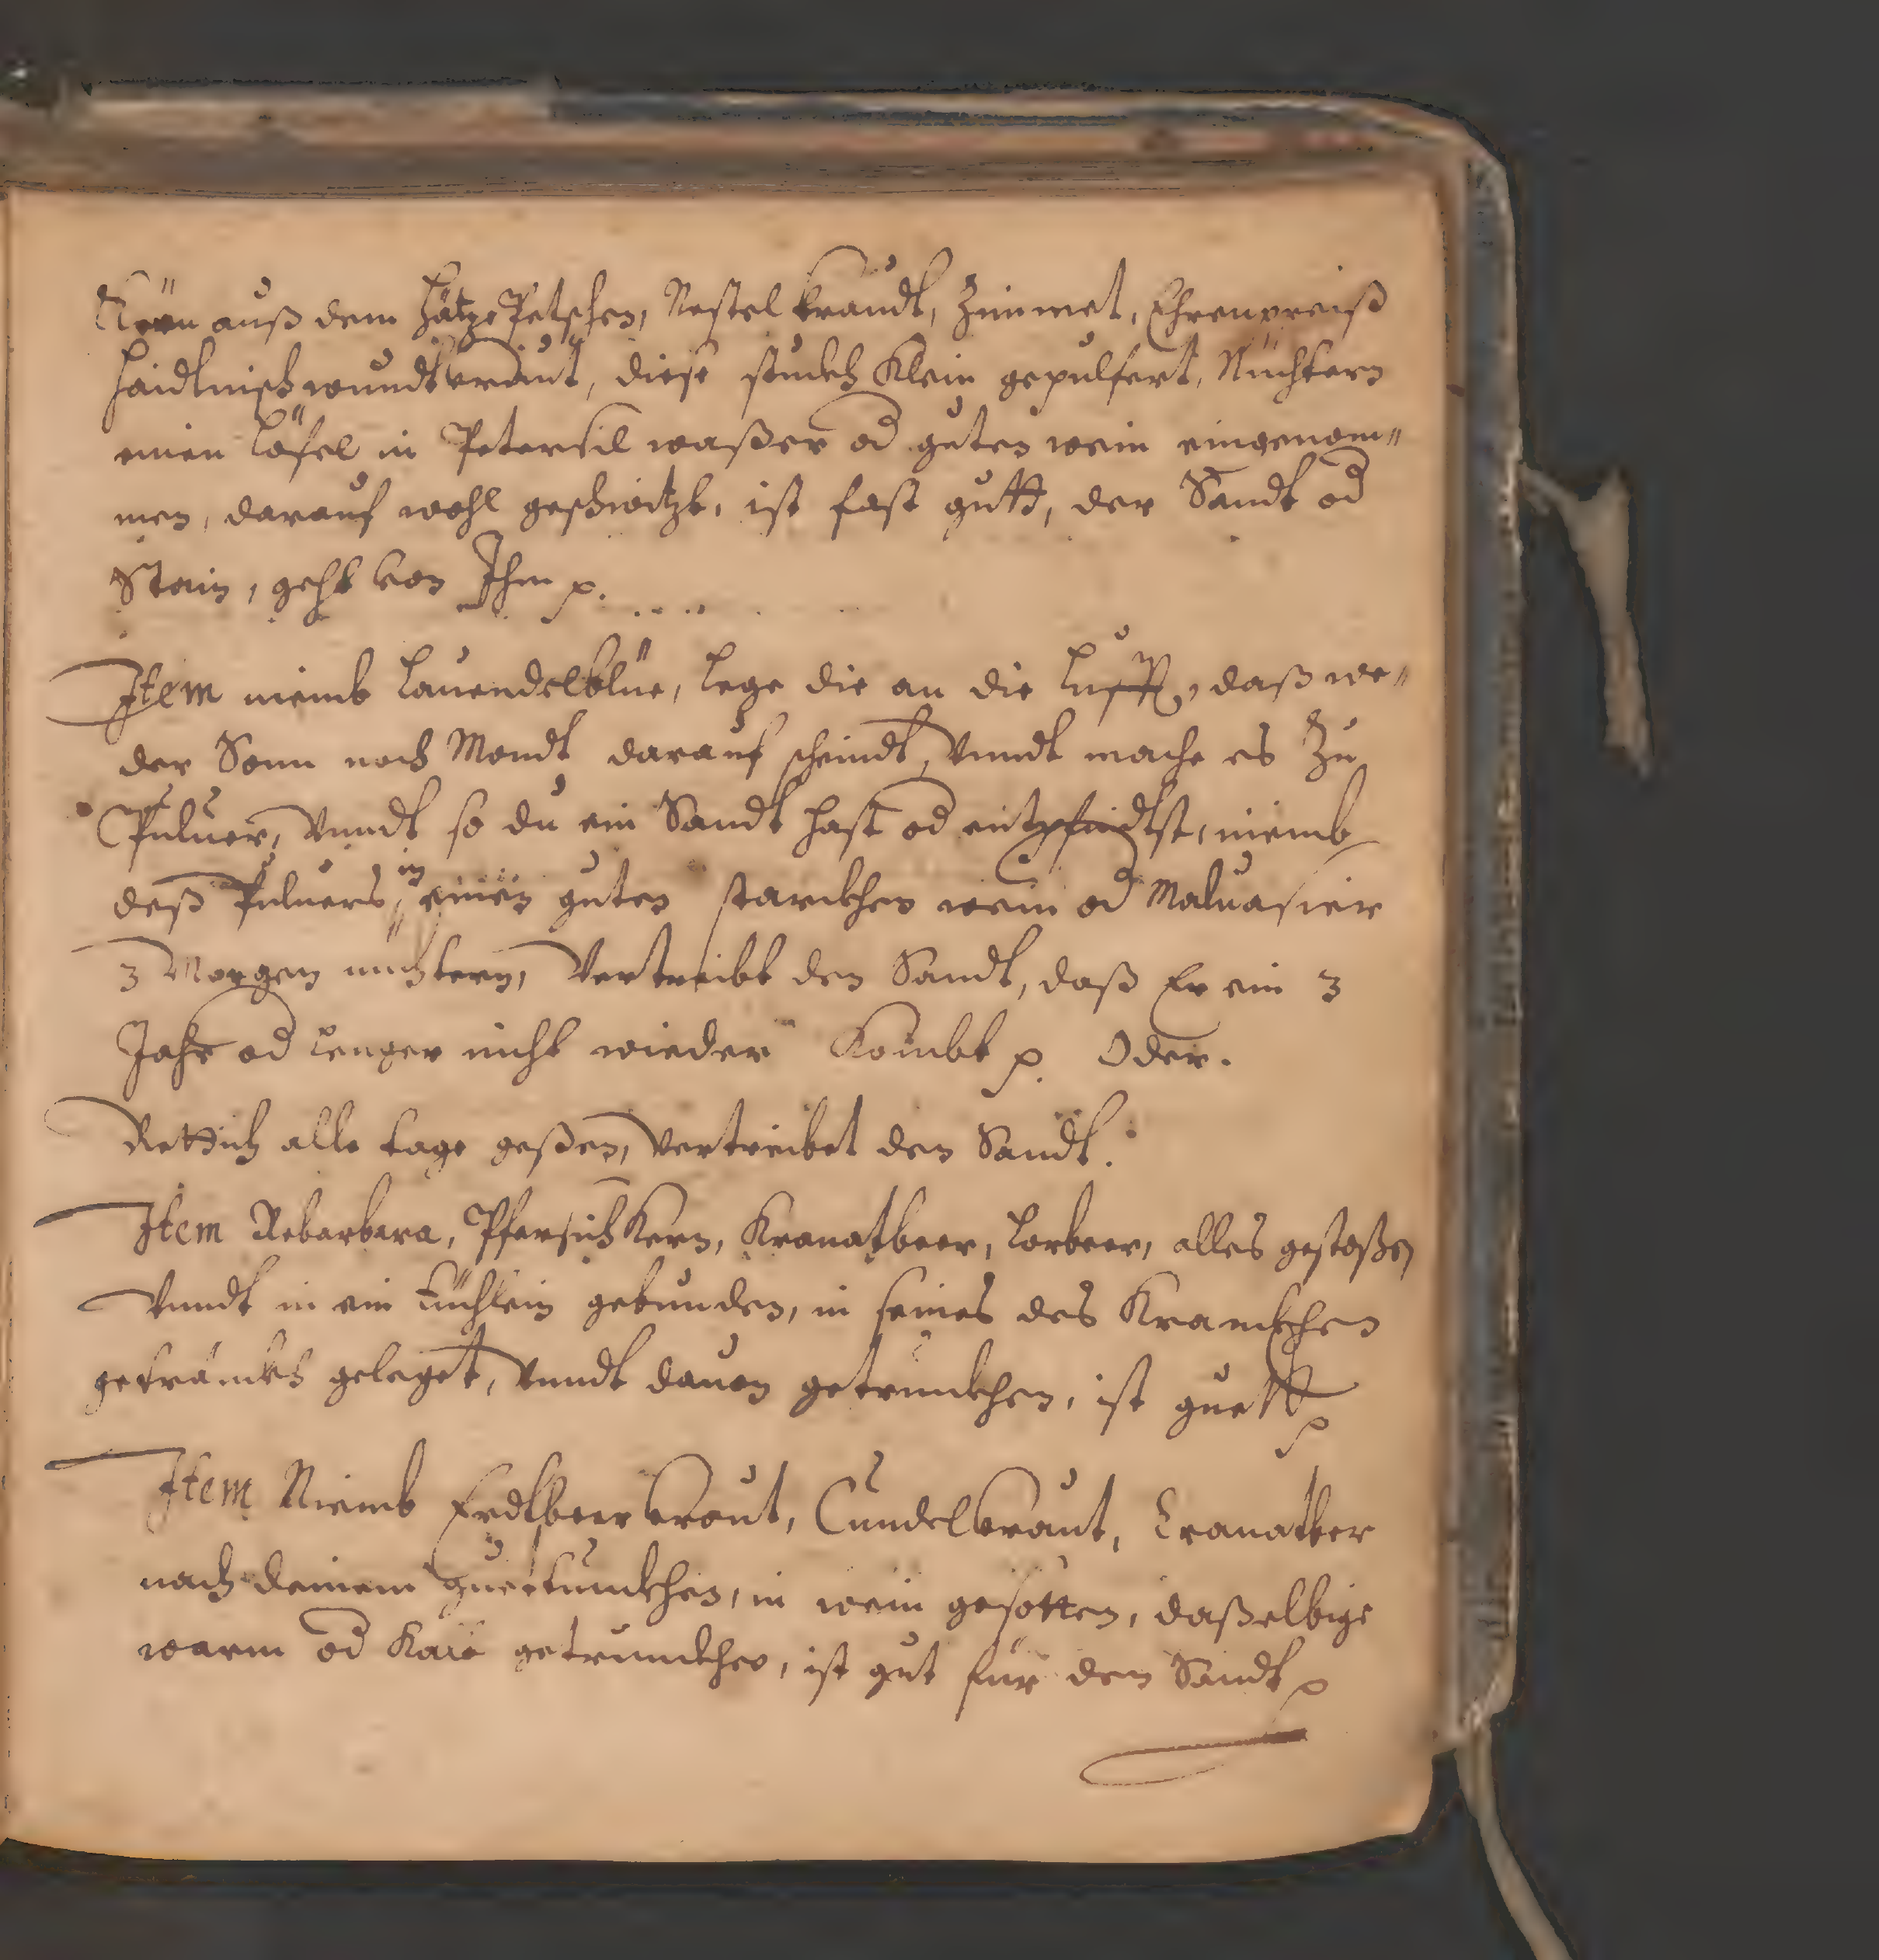 Kern auß dem HätzePetschen, Nestelkraudt, Zimmet, Ehrenpreiß
Haidlnischwundtkraut, diese stuckh Klein gepulfert, Nüchtern
einen Löfel in Petersil waßer od guten wein eingenom=
men, darauf wohl geschwitzt, ist fast gutt, der Sandt od
Stein, geht von Ihm p.
Item niemb Lauendelblüe, Lege die an die Lufft, daß we=
der Sonn noch Mondt darauf scheindt, Vnndt mache es Zu
Puluer, Vnndt so du ein Sandt hast od entpfindtst, niemb
deß Puluers, in einen guten starckhen wein od Maluasier
3 Morgen nuchtern, Vertreibt den Sandt, daß Er ein 3
Jahr od lenger nicht wieder Kombt p. Oder.
Rettich alle tage geßen, Vertreibet den Sandt.
Item Rebarbara, PfersichKern, Kranatbeer, Lorbeer, alles gestoßen
Vnndt in ein tüchlein gebunden, in seines des Kranckhen
getränckh geleget, Vnndt dauon getrunckhen, ist guett p
Item Niemb Erdtbeerkraut, Cundelkraut, Cranatber
nach deinem guettunckhen, in wein gesotten, daßelbige
warm od getrunckhen, ist gut für den Sandt p